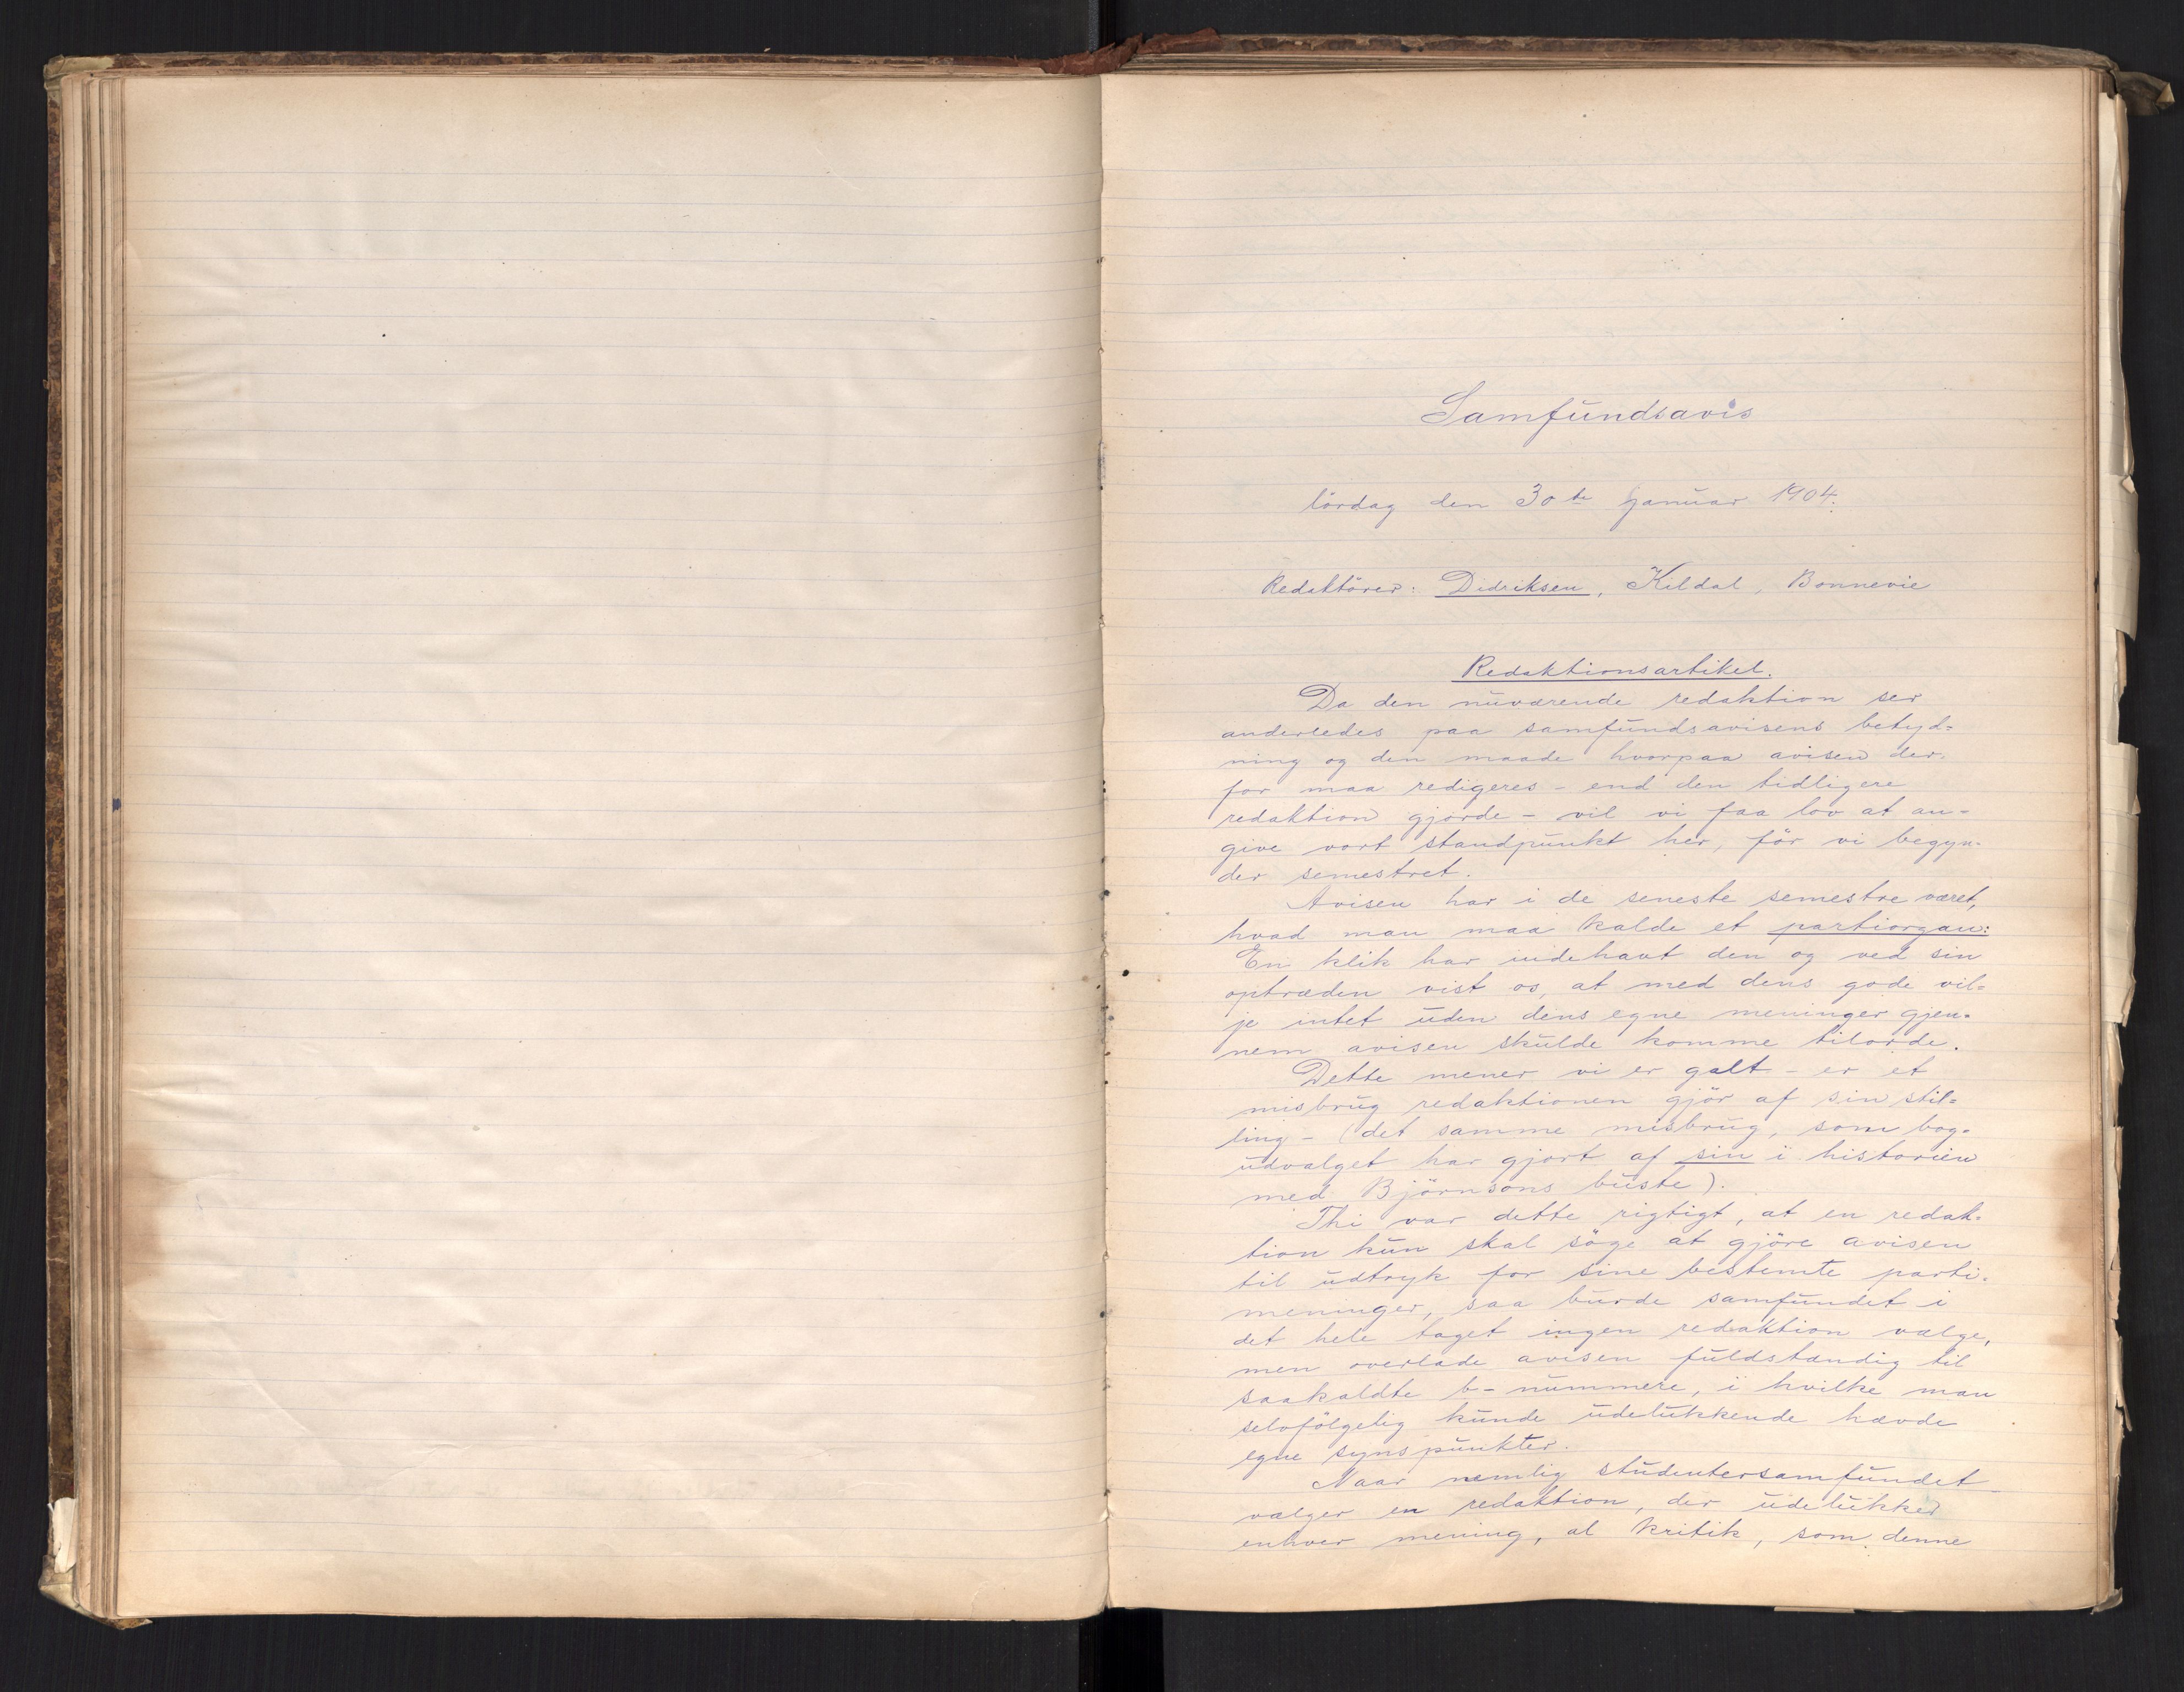 Samfundsavis
lördag den 30te januar 1904.
Redaktörer: Didriksen, Kildal, Bonnevie
Redaktionsartikel.
Da den nuværende redaktion ser
anderledes paa samfundsavisens betyd=
ning og den maade hvorpaa avisen der-
for maa redigeres - end den tidligere
redaktion gjorde - vil vi faa lov at an-
give vort standpunkt her, för vi begyn-
der semestret.
Avisen har i de seneste semestre været,
hvad man maa kalde et partiorgan:
En klik har indehavt den og ved sin
optræden vist os, at med dens gode vil=
je intet uden dens egne meninger gjen-
nem avisen skulde komme tilorde.
Dette mener vi er galt - er et
misbrug redaktionen gjör af sin stil=
ling - (det samme misbrug, som bog-
udvalget har gjort af sin i historien
med Björnsons buste).
Thi var dette rigtigt, at en redak-
tion kun skal söge at gjöre avisen
til udtryk for sine bestemte parti-
meninger, saa burde samfundet i
det hele taget ingen redaktion vælge,
men overlade avisen fuldstændig til
saakaldte b-nummere, i hvilke man
selvfölgelig kunde udelukkende hævde
egne synspunkter.
Naar nemlig studentersamfundet
vælger en redaktion, der udelukker
enhver mening, al kritik, som denne